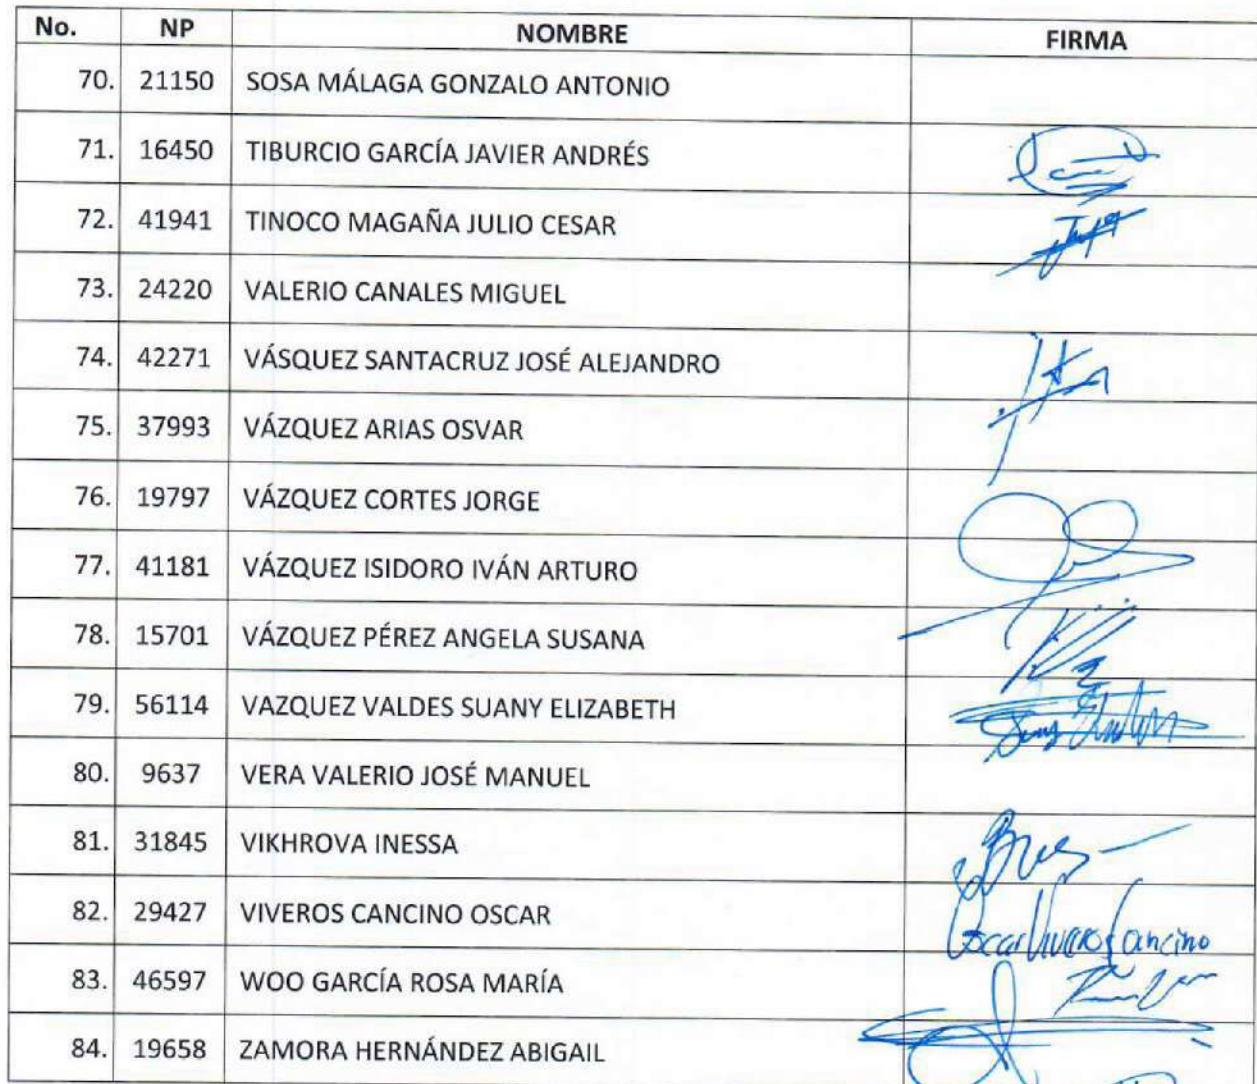 No. NP NOMBRE FIRMA
70. 21150 SOSA MÁLAGA GONZALO ANTONIO
71. 16450 TIBURCIO GARCÍA JAVIER ANDRÉS
72. 41941 TINOCO MAGAÑA JULIO CESAR
73. 24220 VALERIO CANALES MIGUEL
74. 42271 VÁSQUEZ SANTACRUZ JOSÉ ALEJANDRO
75. 37993 VÁZQUEZ ARIAS OSVAR
76. 19797 VÁZQUEZ CORTES JORGE
77. 41181 VÁZQUEZ ISIDORO IVÁN ARTURO
78. 15701 VÁZQUEZ PÉREZ ANGELA SUSANA
79. 56114 VAZQUEZ VALDES SUANY ELIZABETH
80. 9637 VERA VALERIO JOSÉ MANUEL
81. 31845 VIKHROVA INESSA
82. 29427 VIVEROS CANCINO OSCAR Oscar Viveros Cancino
83. 46597 WOO GARCÍA ROSA MARÍA
84. 19658 ZAMORA HERNÁNDEZ ABIGAIL